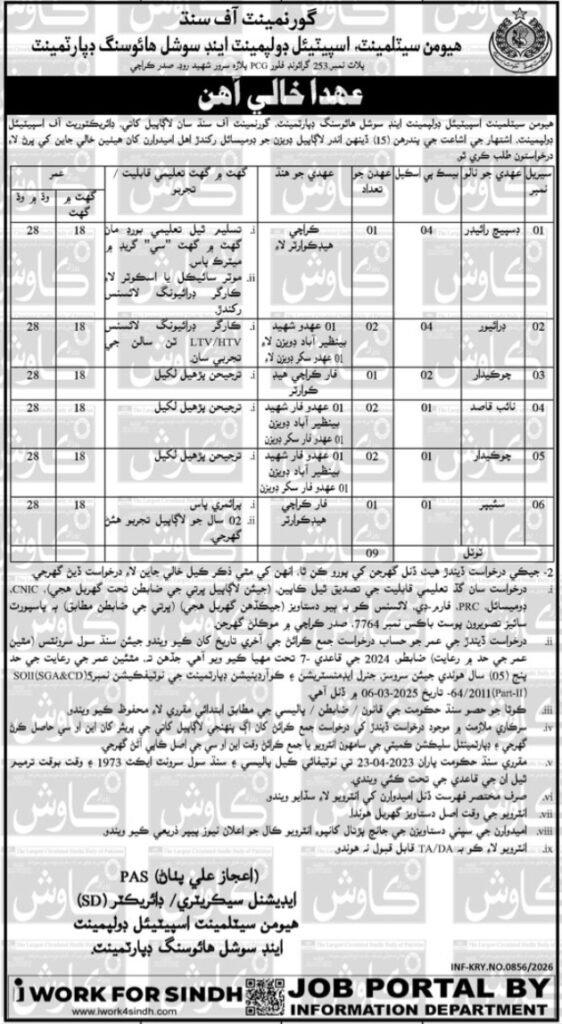 گورنمينٽ آف سنڌ
هيومن سيٽلمينٽ، اسپيٽيئل ڊولپمينٽ اينڊ سوشل هائوسنگ ڊپارٽمينٽ
پلاٽ نمبر 253 گرائونڊ فلور PCG پلازه سرور شهيد روڊ، صدر ڪراچي
عهدا خالي آهن
هيومن سيٽلمينٽ اسپيٽيئل ڊولپمينٽ اينڊ سوشل هائوسنگ ڊپارٽمينٽ، گورنمينٽ آف سنڌ سان لاڳاپيل کاتي، ڊائريڪٽوريٽ آف اسپيٽيئل
ڊولپمينٽ، اشتهار جي اشاعت جي پندرهن (15) ڏينهن اندر لاڳاپيل ڊويزن جو ڊوميسائل رکندڙ اهل اميدوارن کان هيٺين خالي جاين کي ڀرڻ لاءِ
درخواستون طلب ڪري ٿو.
سيريل نمبر | عهدي جو نالو | بيسڪ پي اسڪيل | عهدن جو تعداد | عهدي جو هنڌ | گهٽ ۾ گهٽ تعليمي قابليت / تجربو | عمر
گهٽ ۾ گهٽ | وڌ ۾ وڌ
01 | ڊسپيچ رائيڊر | 04 | 01 | ڪراچي هيڊڪوارٽر لاءِ | i. تسليم ٿيل تعليمي بورڊ مان گهٽ ۾ گهٽ "سي" گريڊ ۾ ميٽرڪ پاس. | 18 | 28
ii. موٽر سائيڪل يا اسڪوٽر لاءِ ڪارگر ڊرائيونگ لائسنس رکندڙ.
02 | ڊرائيور | 04 | 02 | 01 عهدو شهيد بينظير آباد ڊويزن لاءِ | i. ڪارگر ڊرائيونگ لائسنس LTV/HTV ٽن سالن جي تجربي سان. | 18 | 28
01 عهدو سکر ڊويزن لاءِ
03 | چوڪيدار | 02 | 01 | فار ڪراچي هيڊ ڪوارٽر | i. ترجيحن پڙهيل لکيل | 18 | 28
04 | نائب قاصد | 01 | 02 | 01 عهدو فار شهيد بينظير آباد ڊويزن | i. ترجيحن پڙهيل لکيل | 18 | 28
01 عهدو فار سکر ڊويزن
05 | چوڪيدار | 01 | 02 | 01 عهدو فار شهيد بينظير آباد ڊويزن | i. ترجيحن پڙهيل لکيل | 18 | 28
01 عهدو فار سکر ڊويزن
06 | سئيپر | 01 | 01 | فار ڪراچي هيڊڪوارٽر | i. پرائمري پاس | 18 | 28
ii. 02 سال جو لاڳاپيل تجربو هئڻ گهرجي.
ٽوٽل | 09
2- جيڪي درخواست ڏيندڙ هيٺ ڏنل گهرجن کي پورو ڪن ٿا، انهن کي مٿي ذڪر ڪيل خالي جاين لاءِ درخواست ڏيڻ گهرجي.
i. درخواست سان گڏ تعليمي قابليت جي تصديق ٿيل ڪاپين، (جيئن لاڳاپيل ڀرتي جي ضابطن تحت گهربل هجي)، CNIC،
ڊوميسائل، PRC، فارم-ڊي، لائسنس ڪو به ٻيو دستاويز (جيڪڏهن گهربل هجي) (ڀرتي جي ضابطن مطابق) ۽ پاسپورٽ
سائيز تصويرون پوسٽ باڪس نمبر 7764، صدر ڪراچي ۾ موڪلڻ گهرجن.
ii. درخواست ڏيندڙ جي عمر جو حساب درخواست جمع ڪرائڻ جي آخري تاريخ کان ڪيو ويندو جيئن سنڌ سول سرونٽس (مٿين
عمر جي حد ۾ رعايت) ضابطو، 2024 جي قاعدي -7 تحت مهيا ڪيو ويو آهي. جڏهن ته، مٿئين عمر جي رعايت جي حد
پنج (05) سال هوندي جيئن سروسز، جنرل ايڊمنسٽريشن ۽ ڪوآرڊينيشن ڊپارٽمينٽ جي نوٽيفڪيشن نمبر SOII(SGA&CD)5-
64/2011(Part-II)، تاريخ 06-03-2025 ۾ ڏنل آهي.
iii. ڪوٽا جو حصو سنڌ حڪومت جي قانون / ضابطن / پاليسي جي مطابق ابتدائي مقرري لاءِ محفوظ ڪيو ويندو
iv. سرڪاري ملازمت ۾ موجود درخواست ڏيندڙ کي درخواست جمع ڪرائڻ کان اڳ پنهنجي لاڳاپيل کاتي جي پريئر کان اين او سي حاصل ڪرڻ
گهرجي ۽ ڊپارٽمينٽل سليڪشن ڪميٽي جي سامهون انٽرويو يا جمع ڪرائڻ وقت اين او سي جي اصل ڪاپي آڻڻ گهرجي.
v. مقرري سنڌ حڪومت پاران 23-04-2023 تي نوٽيفائي ڪيل پاليسي ۽ سنڌ سول سرونٽ ايڪٽ 1973 ۽ وقت بوقت ترميم
ٿيل ان جي قاعدي جي تحت ڪئي ويندي.
vi. صرف مختصر فهرست ڏنل اميدوارن کي انٽرويو لاءِ سڏايو ويندو
vii. انٽرويو جي وقت اصل دستاويز گهربل هوندا.
viii. اميدوارن جي سڀني دستاويزن جي جانچ پڙتال کانپوءِ انٽرويو ڪال جو اعلان نيوز پيپر ذريعي ڪيو ويندو
ix. انٽرويو لاءِ ڪو به TA/DA قابل قبول نه هوندو
(اعجاز علي پٺاڻ) PAS
ايڊيشنل سيڪريٽري/ ڊائريڪٽر (SD)
هيومن سيٽلمينٽ اسپيٽيئل ڊولپمينٽ
اينڊ سوشل هائوسنگ ڊپارٽمينٽ.
INF-KRY.NO.0856/2026
i WORK FOR SINDH
www.iwork4sindh.com
JOB PORTAL BY
INFORMATION DEPARTMENT
ڪاوش
The Largest Circulated Sindhi Daily of Pakistan